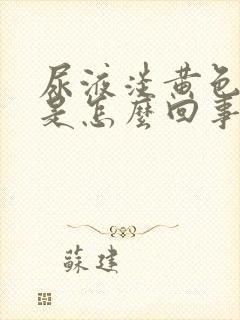 尿液淡黄色
是怎麼回事
蘇建